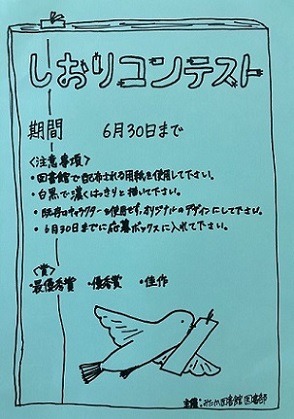 しおりコンテスト
期間　6月30日まで
〈注意事項〉
・図書館で配布される用紙を使用して下さい。
・白黒で濃くはっきりと描いて下さい。
・既存のキャラクターを使用せず、オリジナルのデザインにして下さい。
・6月30日までに応募ボックスに入れて下さい。
〈賞〉
・最優秀賞　・優秀賞　・佳作
主催：図書館 図書部